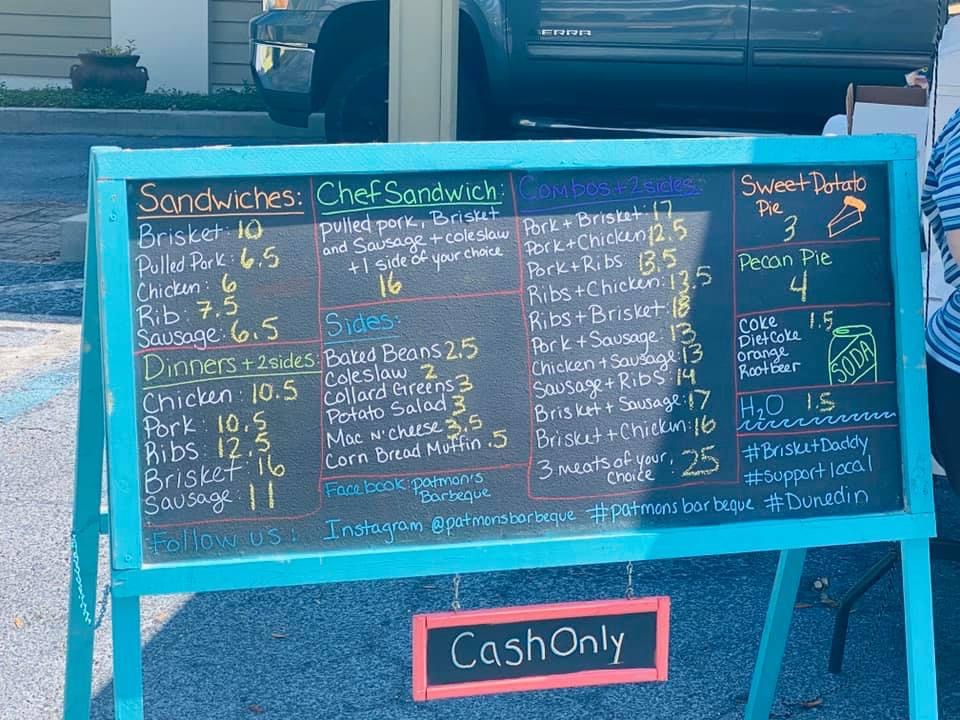 SIERRA
Sandwiches:
Brisket: 10
Pulled Pork: 6.5
Chicken: 6
Rib: 7.5
Sausage: 6.5
Dinners + 2 sides:
Chicken: 10.5
Pork: 10.5
Ribs: 12.5
Brisket: 16
Sausage: 11
Chef Sandwich:
Pulled pork, Brisket
and Sausage + coleslaw
+ 1 side of your choice
16
Sides:
Baked Beans 2.5
Coleslaw 2
Collard Greens 3
Potato Salad 3
Mac N' cheese 3.5
Corn Bread Muffin .5
Combos + 2 sides:
Pork + Brisket: 17
Pork + Chicken 12.5
Pork + Ribs 13.5
Ribs + Chicken: 13.5
Ribs + Brisket: 18
Pork + Sausage: 13
Chicken + Sausage: 13
Sausage + Ribs: 14
Brisket + Sausage: 17
Brisket + Chicken: 16
3 meats of your choice: 25
Sweet Potato
Pie
3
Pecan Pie
4
Coke 1.5
Diet Coke
Orange
Rootbeer
SODA
H2O 1.5
#BrisketDaddy
#Supportlocal
Facebook: patmon's
Barbeque
Follow us: Instagram @patmonsbarbeque #patmonsbarbeque #Dunedin
Cash Only